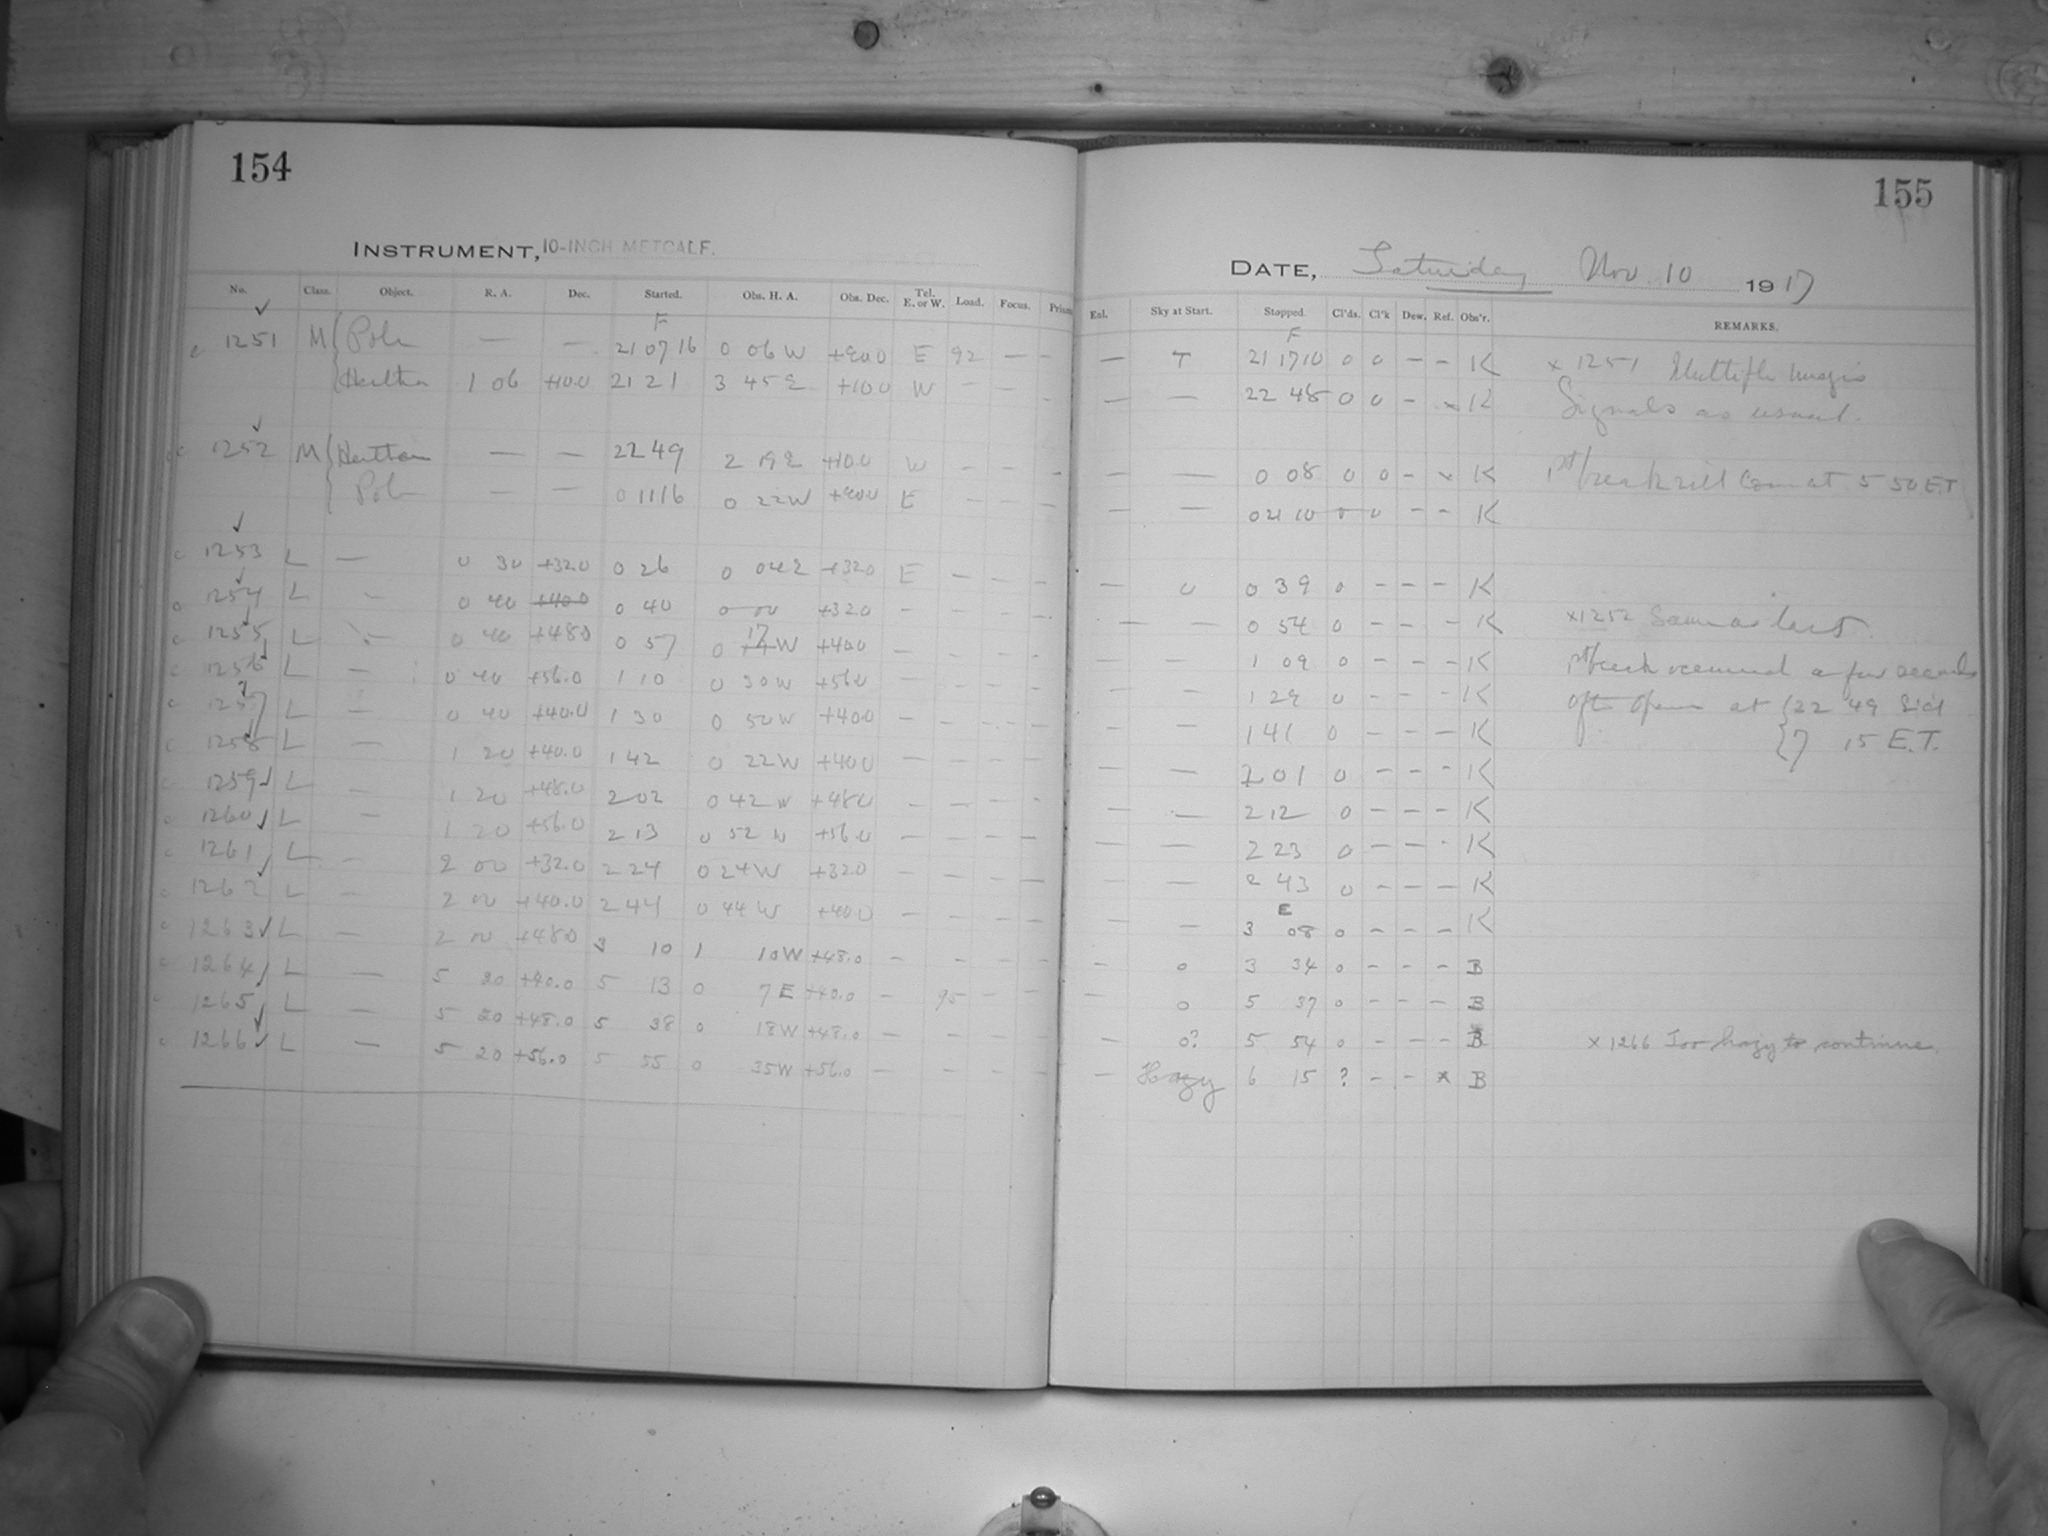 154
INSTRUMENT, 10-INCH METCALF.
No. Class. Object. R. A. Dec. Started. Obs. H. A. Obs. Dec. Tel. E. or W. Load. Focus. Prism
F
1251 M { Pole — — 21 07 16 0 06 W +90.0 E 92 — —
{ Hertha 1 06 +10.0 21 21 3 45 E +10.0 W — —
1252 M { Hertha — — 22 49 2 19 E +10.0 W — — —
{ Pole — — 0 11 16 0 22 W +90.0 E — — —
1253 L — 0 30 +32.0 0 26 0 04 E +32.0 E — — —
1254 L — 0 40 +40.0 0 40 0 00 +32.0 — — — —
1255 L — 0 40 +48.0 0 57 0 17 W +40.0 — — — —
1256 L — 0 40 +56.0 1 10 0 30 W +56.0 — — — —
1257 L — 0 40 +40.0 1 30 0 50 W +40.0 — — — —
1258 L — 1 20 +40.0 1 42 0 22 W +40.0 — — — —
1259 L — 1 20 +48.0 2 02 0 42 W +48.0 — — — —
1260 L — 1 20 +56.0 2 13 0 52 W +56.0 — — — —
1261 L — 2 00 +32.0 2 24 0 24 W +32.0 — — — —
1262 L — 2 00 +40.0 2 44 0 44 W +40.0 — — — —
1263 L — 2 00 +48.0 3 10 1 10 W +48.0 — — — —
1264 L — 5 20 +40.0 5 13 0 7 E +40.0 — 95 — —
1265 L — 5 20 +48.0 5 38 0 18 W +48.0 — — — —
1266 L — 5 20 +56.0 5 55 0 35 W +56.0 — — — —
155
DATE, Saturday Nov 10 1917
Enl. Sky at Start. Stopped. Cl'ds. Cl'k Dew. Ref. Obs'r. REMARKS.
F
— T 21 17 10 0 0 — — K × 1251 Multiple images
— — 22 48 0 0 - × K Signals as usual.
— — 0 08 0 0 - × K 1st break will come at 5 50 E.T
— — 0 21 10 0 0 — - K
— 0 0 39 0 - - - K
— — 0 54 0 - - - K ×1252 Same as last
— — 1 09 0 - - - K 1st break occurred a few seconds
— — 1 29 0 - - - K after open at { 22 49 Sid
— — 1 41 0 - - - K { 7 15 E.T.
— — 2 01 0 - - - K
— — 2 12 0 - - - K
— — 2 23 0 - - - K
— — 2 43 0 - - - K
E
— — 3 08 0 - - - K
— 0 3 34 0 - - - B
— 0 5 37 0 - - - B
— 0? 5 54 0 - - - B × 1266 Too hazy to continue.
— Hazy 6 15 ? - - × B